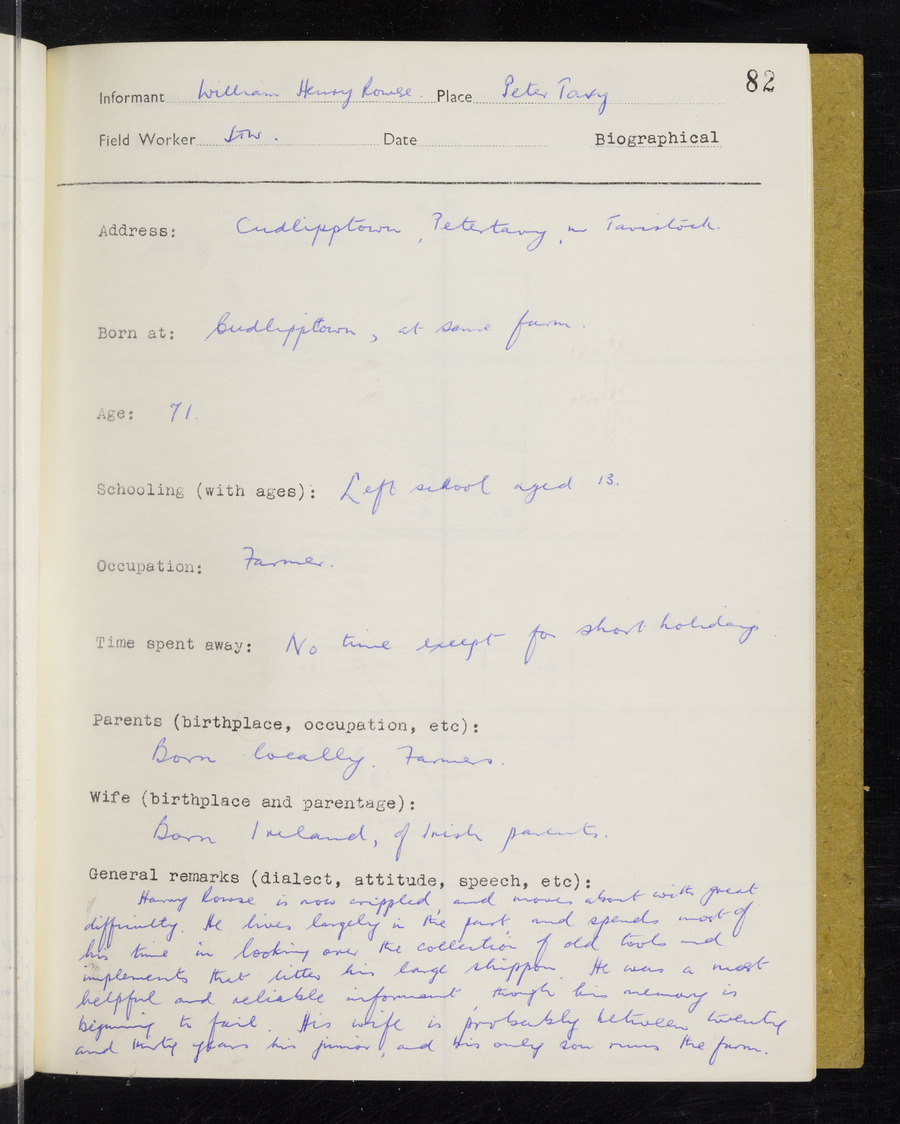 82
Informant William Henry Rowse. Place Peter Tavy
Field Worker Date Biographical
Address: Cudlipptown, Petertavy, nr Tavistock.
Born at: Cudlipptown, at same farm.
Age: 71.
Schooling (with ages): Left school aged 13.
Occupation: Farmer.
Time spent away: No time except for short holidays
Parents (birthplace, occupation, etc):
Born locally. Farmers.
Wife (birthplace and parentage):
Born Ireland, of Irish parents.
General remarks (dialect, attitude, speech, etc):
Harry Rowse is now crippled, and moves about with great
difficulty. He lives largely in the past and spends most of
his time in looking over the collection of old tools and
implements that litter his large shippon. He was a most
helpful and reliable informant, though his memory is
beginning to fail. His wife is probably between twenty
and thirty years his junior, and his only son runs the farm.